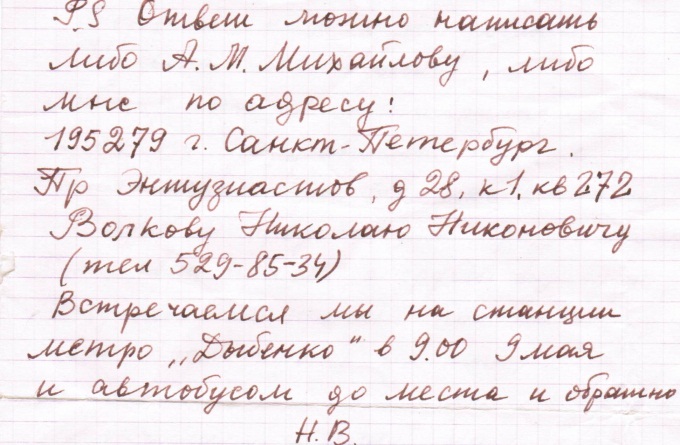 P.S Ответ можно написать
либо А. М. Михайлову, либо
мне по адресу:
195279 г. Санкт-Петербург.
Пр Энтузиастов, д 28, к1, кв 272
Волкову Николаю Никоновичу
(тел 529-85-34)
Встречаемся мы на станции
метро „Дыбенко“ в 9.00 9 мая
и автобусом до места и обратно
Н.В.